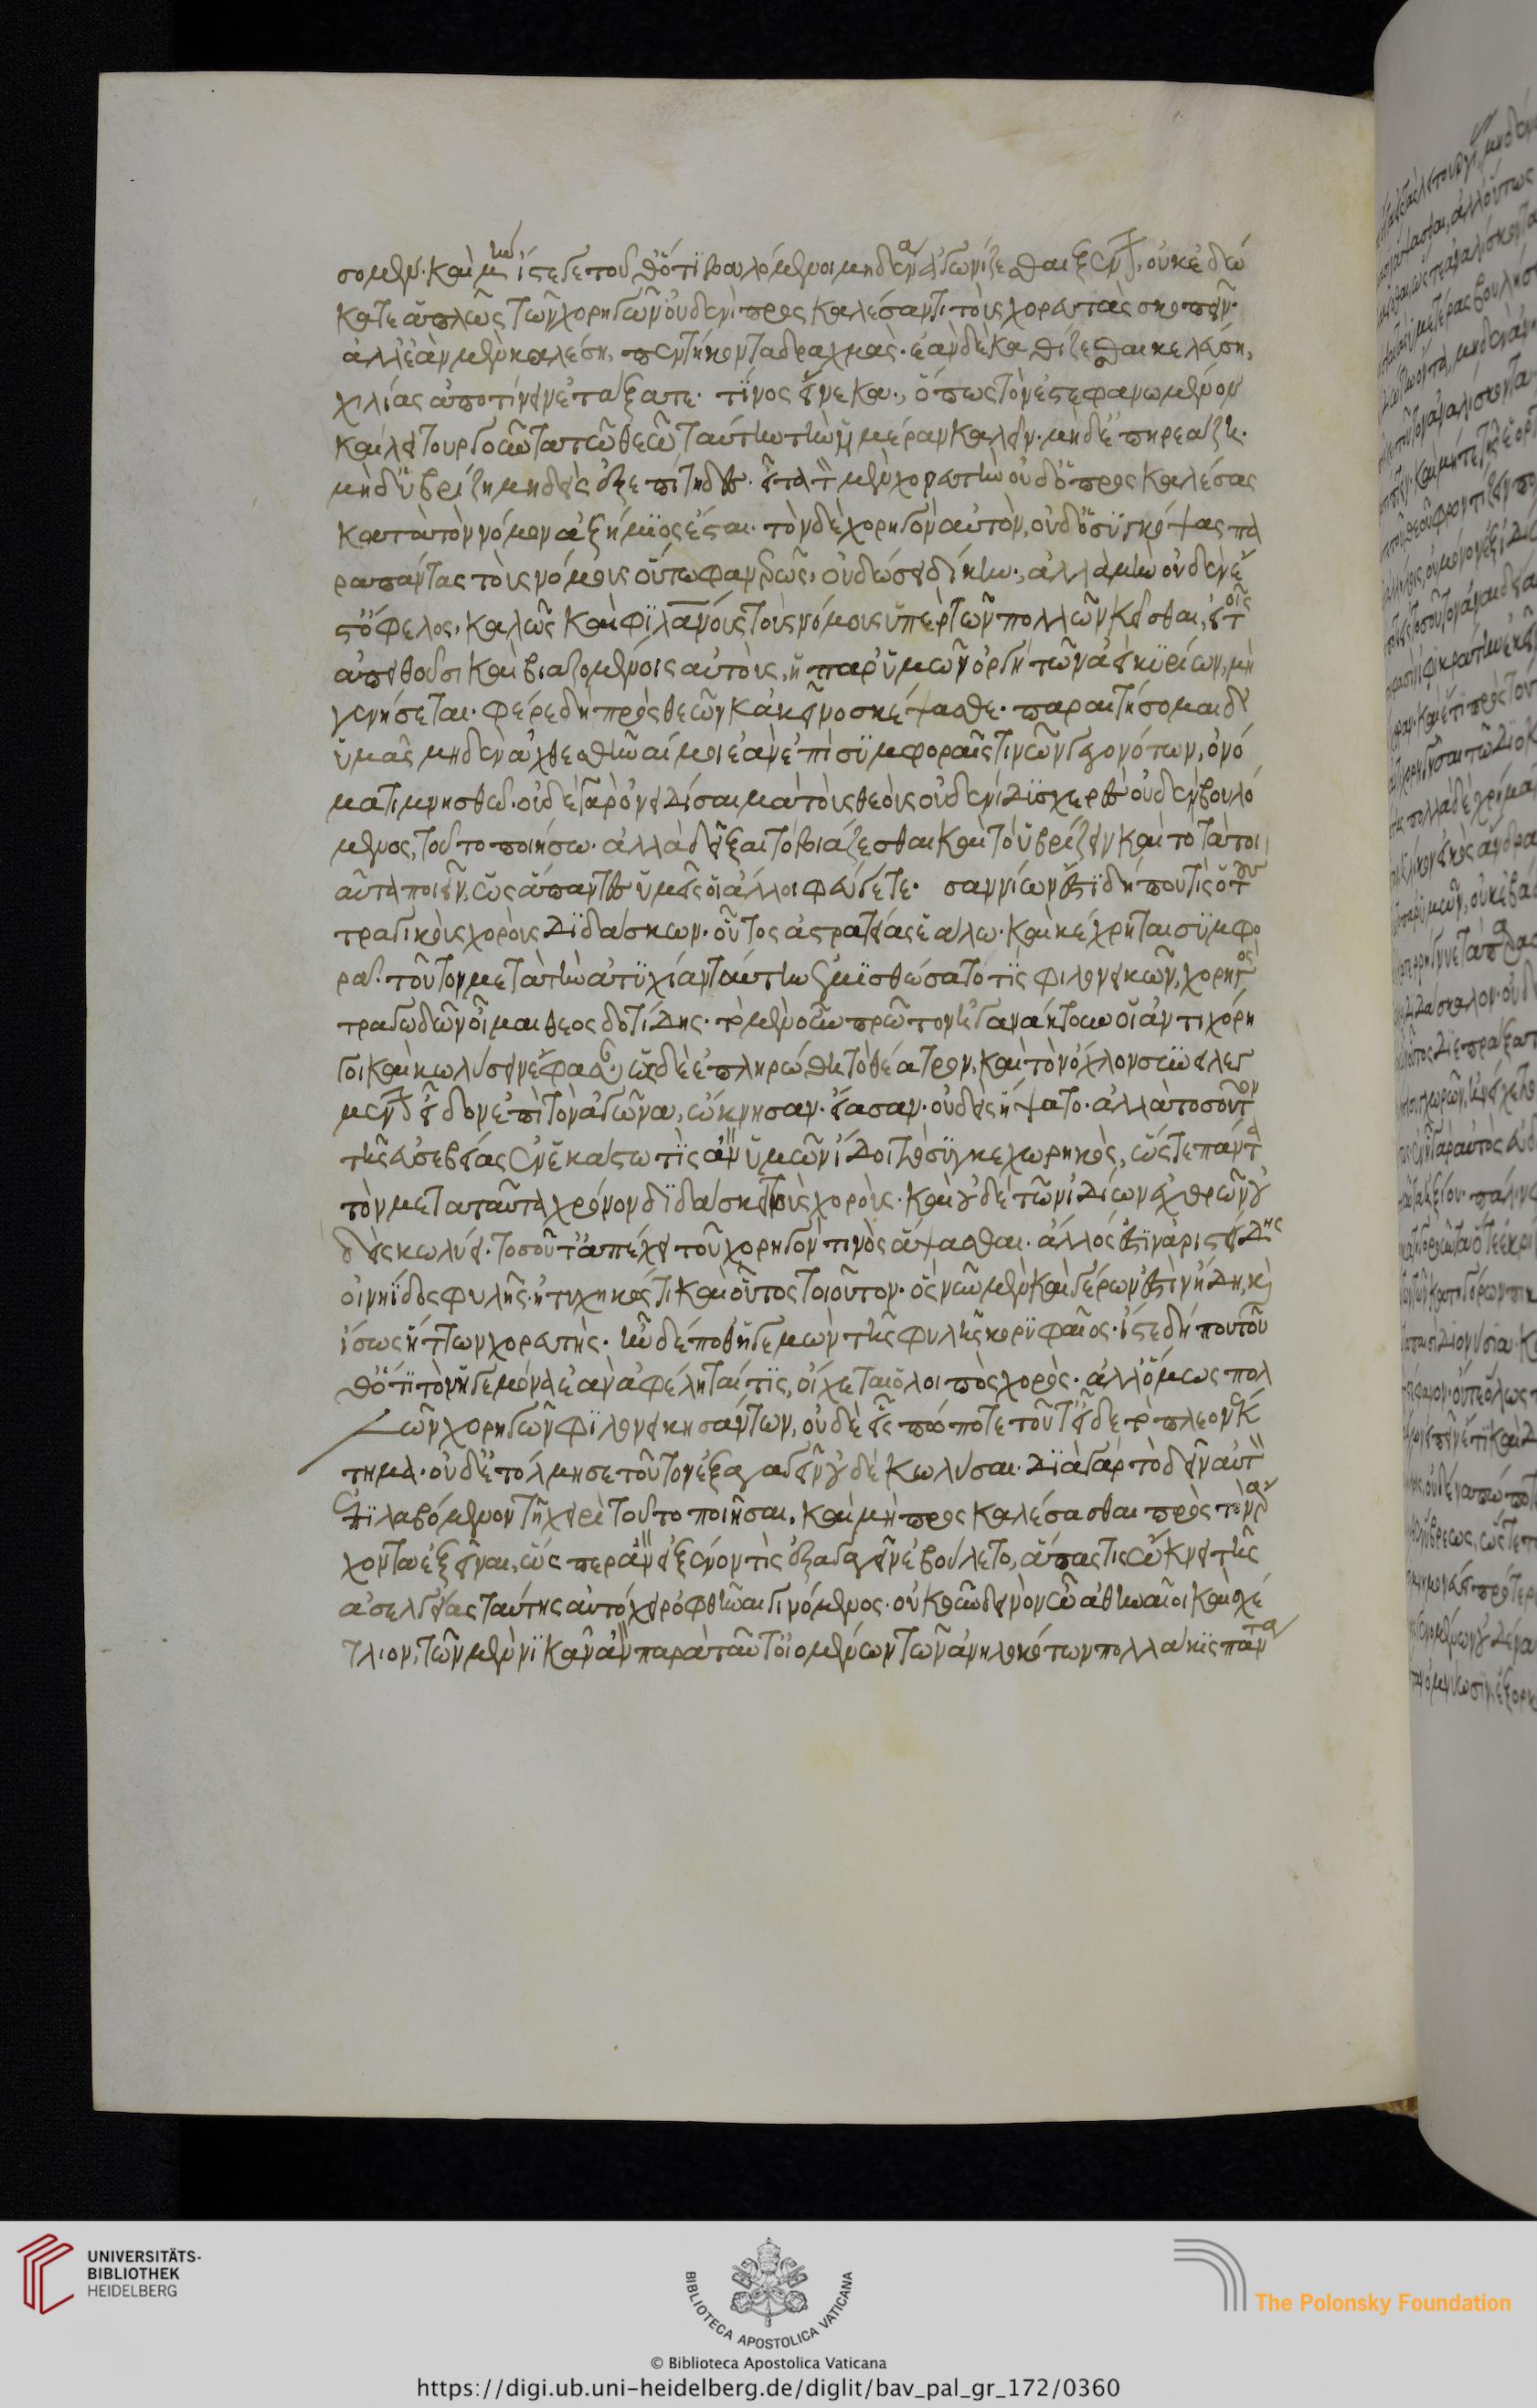 σομεν. καὶ μὴν ἴστε γε τοῦθ' ὅτι βουλόμενοι μηδένα ἀγωνίζεσθαι ξένον, οὐκ ἐδώ
κατε ἁπλῶς τῶν χορηγῶν οὐδενὶ προσκαλέσαντι τοὺς χορευτὰς σκοπεῖν.
ἀλλ' ἐὰν μὲν καλέσῃ, πεντήκοντα δραχμάς. ἐὰν δὲ καθίζεσθαι κελεύσῃ,
χιλίας ἀποτίνειν ἐτάξατε. τίνος ἕνεκα., ὅπως τὸν ἐστεφανωμένον
καὶ λειτουργοῦντα τῷ θεῷ ταύτην τὴν ἡμέραν καλῇ. μηδ' ἐπηρεάζῃ.
μηδ' ὑβρίζῃ μηδεὶς ἐξεπίτηδες. εἶτα τὸν μὲν χορευτὴν οὐδ' ὁ προσκαλέσας
κατὰ τὸν νόμον ἀζήμιος ἔσται. τὸν δὲ χορηγὸν αὐτὸν, οὐδ' ὁ συγκόψας πα
ρὰ πάντας τοὺς νόμους οὕτω φανερῶς, οὐ δώσει δίκην., ἀλλὰ μὴν οὐδέν ἐ
στ' ὄφελος, καλῶς καὶ φιλανους τοὺς νόμους ὑπὲρ τῶν πολλῶν κεῖσθαι, εἰ τοῖς
ἀπειθοῦσι καὶ βιαζομένοις αὐτοὺς, ἡ παρ' ὑμῶν ὀργὴ τῶν ἀεὶ κυρίων, μὴ
γενήσεται. φέρε δὴ πρὸς θεῶν κἀκεῖνο σκέψασθε. παραιτήσομαι δ'
ὑμᾶς μηδὲν ἀχθεσθῆναί μοι ἐὰν ἐπὶ συμφοραῖς τινῶν γεγονότων, ὀνό
ματι μνησθῶ. οὐδὲ γὰρ ὀνειδίσαι μὰ τοὺς θεοὺς οὐδενὶ δυσχερὲς οὐδὲν βουλό
μενος, τοῦτο ποιήσω. ἀλλὰ δεῖξαι τὸ βιάζεσθαι καὶ τὸ ὑβρίζειν καὶ τὸ τὰ τοι
αῦτα ποιεῖν, ὡς ἅπαντες ὑμεῖς οἱ ἄλλοι φεύγετε. σαννίων ἐστὶ δήπου τὶς ὁ τοὺς
τραγικοὺς χοροὺς διδάσκων. οὗτος ἀστρατείας ἑάλω. καὶ κέχρηται συμφο
ρᾷ. τοῦτον μετὰ τὴν ἀτυχίαν ταύτην ἐμισθώσατό τις φιλονεικῶν, χορηγὸς
τραγῳδῶν οἶμαι θεοσδοτίδης. τὸ μὲν οὖν πρῶτον ἠγανάκτουν οἱ ἀντιχόρη
γοι καὶ κωλύσειν ἔφασαν. ὡς δὲ ἐπληρώθη τὸ θέατρον, καὶ τὸν ὄχλον συνειλεγ
μένον εἶδον ἐπὶ τὸν ἀγῶνα, ὤκνησαν. εἴασαν. οὐδεὶς ἥψατο. ἀλλὰ τοσοῦτον
τῆς εὐσεβείας ἐν ἑκάστῳ τὶς ἂν ὑμῶν ἴδοι τὸ συγκεχωρηκὸς, ὥστε πάντα
τὸν μετὰ ταῦτα χρόνον διδάσκει τοὺς χορούς. καὶ οὐδὲ τῶν ἰδίων ἐχθρῶν οὐ
δεὶς κωλύει. τοσοῦτ' ἀπέχει τοῦ χορηγόν τινος ἅψασθαι. ἄλλός ἐστιν ἀριστείδης
οἰνηίδος φυλῆς. ἠτυχηκώς τι καὶ οὗτος τοιοῦτον. ὃς νῦν μὲν καὶ γέρων ἐστὶν ἤδη, καὶ
ἴσως ἥττων χορευτής. ἦν δέ ποθ' ἡγεμὼν τῆς φυλῆς κορυφαῖος. ἴστε δήπου τοῦ
θ' ὅτι τὸν ἡγεμόνα ἐὰν ἀφέληταί τις, οἴχεται ὁ λοιπὸς χορός. ἀλλ' ὅμως πολ
λῶν χορηγῶν φιλονεικησάντων, οὐδὲ εἷς πώποτε τοῦτ' εἶδε τὸ πλεονέκ
τημα. οὐδ' ἐτόλμησε τοῦτον ἐξαγαγεῖν οὐδὲ κωλύσαι. διὰ γὰρ τὸ δεῖν αὐτὸν
ἐπιλαβόμενον τῇ χειρὶ τοῦτο ποιῆσαι, καὶ μὴ προσκαλέσασθαι πρὸς τὸν ἄρ
χοντα ἐξεῖναι, ὥσπερ ἂν εἰ ξένον τὶς ἐξαγαγεῖν ἐβούλετο, ἅπας τις ὤκνει τῆς
ἀσελγείας ταύτης αὐτόχειρ ὀφθῆναι γινόμενος. οὐκοῦν δεινὸν ὦ ἄνδρες ἀθηναῖοι καὶ σχέ
τλιον, τῶν μὲν νικᾶν ἂν παρὰ τοῦτ' οἰομένων τῶν ἀνηλωκότων πολλάκις πάντα
UNIVERSITÄTS-
BIBLIOTHEK
HEIDELBERG
BIBLIOTECA APOSTOLICA VATICANA
The Polonsky Foundation
© Biblioteca Apostolica Vaticana
https://digi.ub.uni-heidelberg.de/diglit/bav_pal_gr_172/0360